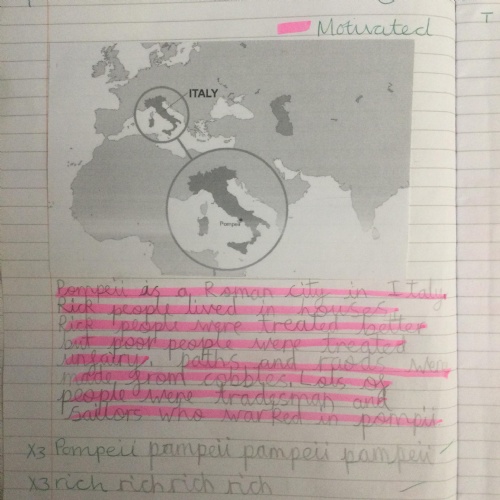 Motivated
ITALY
Pompeii
Pompeii is a Roman city in Italy
Rick people lived in houses.
Rick people were treated better
but poor people were treated
unfairy. paths and roads were
made from cobbles. Lots of
people were tradesman and
sailors who warked in pompii
x3 Pompeii pampeii pampeii pampeii
x3 rich rich rich rich